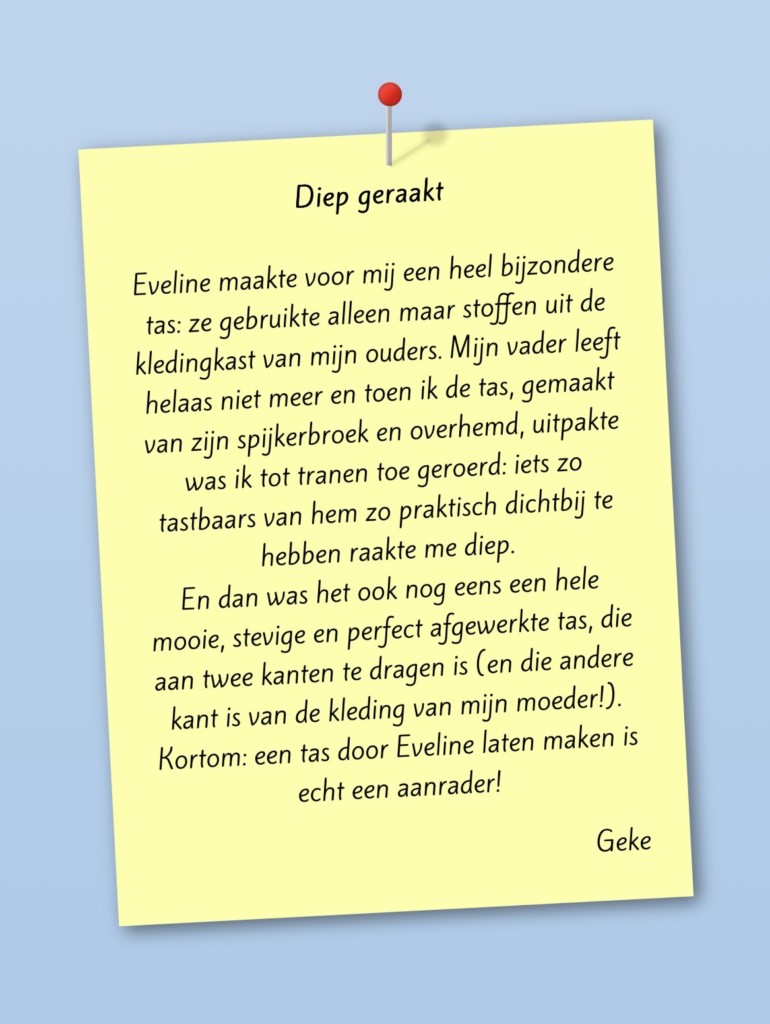 Diep geraakt
Eveline maakte voor mij een heel bijzondere
tas: ze gebruikte alleen maar stoffen uit de
kledingkast van mijn ouders. Mijn vader leeft
helaas niet meer en toen ik de tas, gemaakt
van zijn spijkerbroek en overhemd, uitpakte
was ik tot tranen toe geroerd: iets zo
tastbaars van hem zo praktisch dichtbij te
hebben raakte me diep.
En dan was het ook nog eens een hele
mooie, stevige en perfect afgewerkte tas, die
aan twee kanten te dragen is (en die andere
kant is van de kleding van mijn moeder!).
Kortom: een tas door Eveline laten maken is
echt een aanrader!
Geke